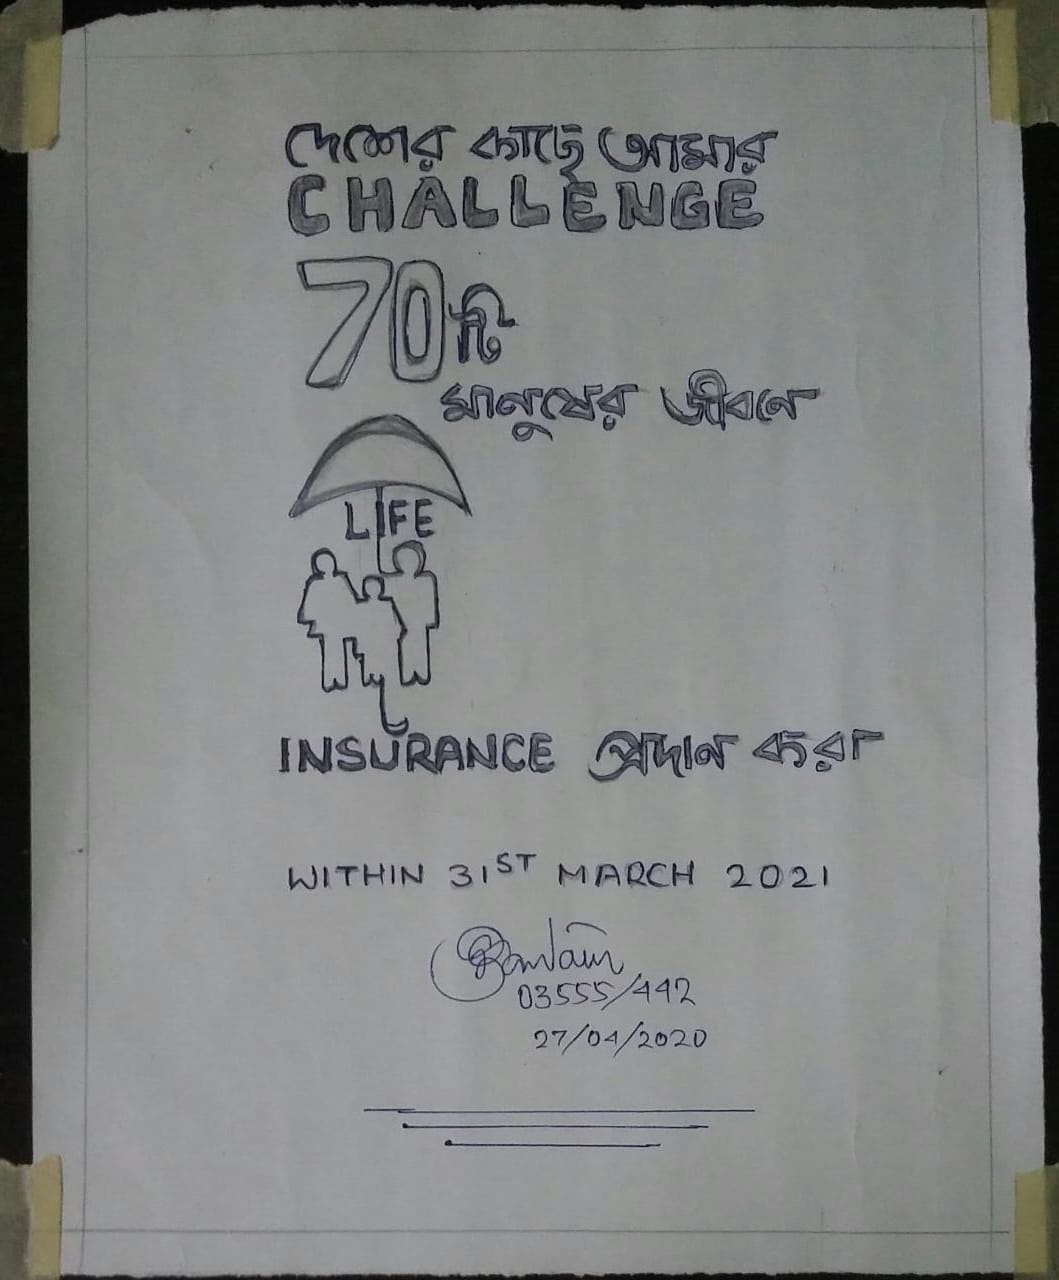 দেশের কাছে আমার
CHALLENGE
70টি
মানুষের জীবনে
LIFE
INSURANCE প্রদান করা
WITHIN 31ST MARCH 2021
03555/442
27/04/2020